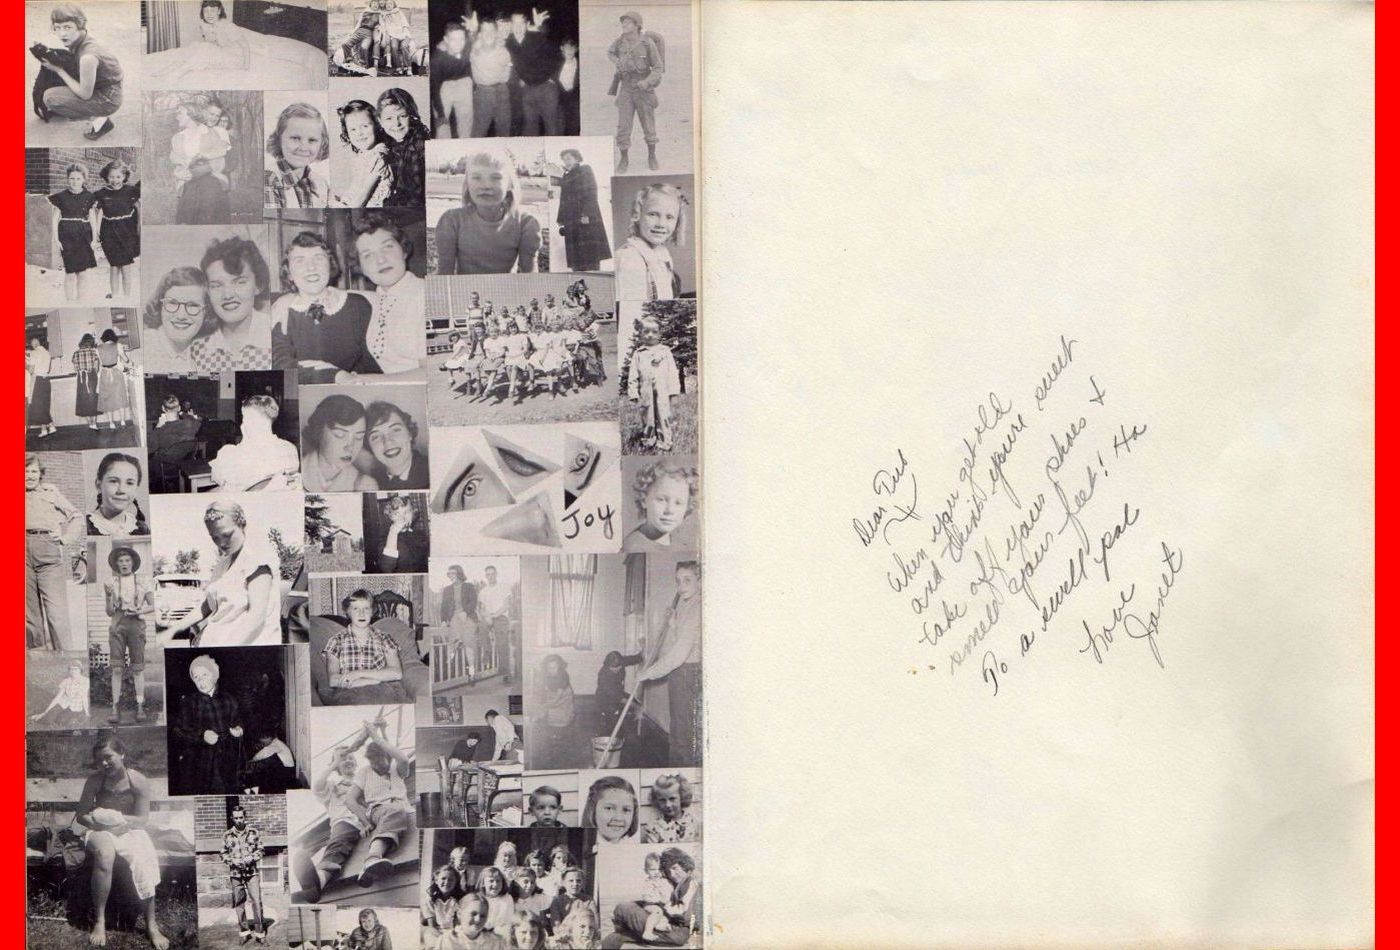 JOY
Dear
When you get old
and think you're sweet
Take off your shoes +
smell your feet! Ha
To a swell pal
Love
Janet